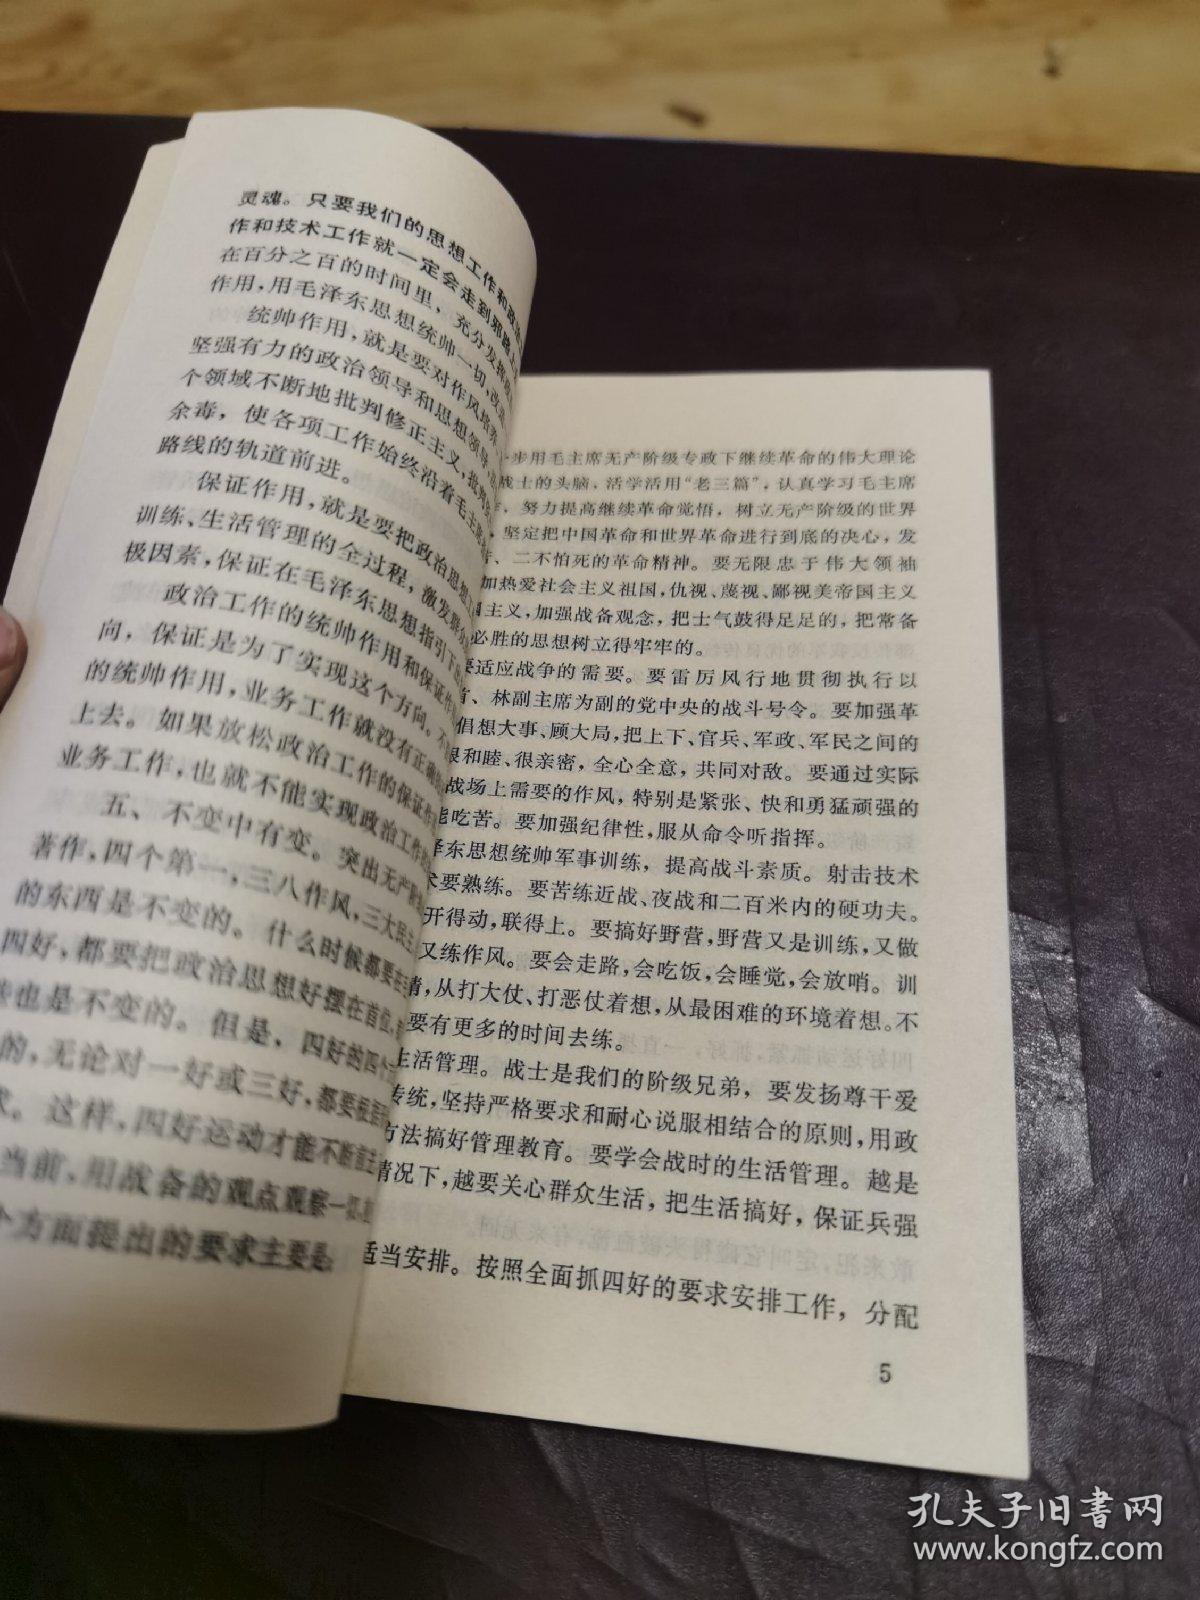 灵魂。只要我们的思想工作和政
作和技术工作就一定会走到邪路上
在百分之百的时间里，充分发挥
作用，用毛泽东思想统帅一切，改
统帅作用，就是要对作风培养
坚强有力的政治领导和思想领导，
个领域不断地批判修正主义，批判
余毒，使各项工作始终沿着毛主席
路线的轨道前进。
保证作用，就是要把政治思想工
训练、生活管理的全过程，激发群众
极因素，保证在毛泽东思想指引下
政治工作的统帅作用和保证作
向，保证是为了实现这个方向。不
的统帅作用，业务工作就没有正确
上去。如果放松政治工作的保证作
业务工作，也就不能实现政治工作的
五、不变中有变。突出无产阶
著作，四个第一，三八作风，三大民主
的东西是不变的。什么时候都要在
四好，都要把政治思想好摆在首位，
也是不变的。但是，四好的四个
的，无论对一好或三好，都要根据
求。这样，四好运动才能不断
当前，用战备的观点观察一切，
个方面提出的要求主要是：
步用毛主席无产阶级专政下继续革命的伟大理论
战士的头脑、活学活用“老三篇”，认真学习毛主席
作，努力提高继续革命觉悟，树立无产阶级的世界
坚定把中国革命和世界革命进行到底的决心，发
、二不怕死的革命精神。要无限忠于伟大领袖
加热爱社会主义祖国，仇视、蔑视、鄙视美帝国主义
国主义，加强战备观念，把士气鼓得足足的，把常备
必胜的思想树立得牢牢的。
要适应战争的需要。要雷厉风行地贯彻执行以
首、林副主席为副的党中央的战斗号令。要加强革
倡想大事、顾大局，把上下、官兵、军政、军民之间的
很和睦、很亲密，全心全意，共同对敌。要通过实际
战场上需要的作风，特别是紧张、快和勇猛顽强的
能吃苦。要加强纪律性，服从命令听指挥。
泽东思想统帅军事训练，提高战斗素质。射击技术
术要熟练。要苦练近战、夜战和二百米内的硬功夫。
开得动，联得上。要搞好野营，野营又是训练，又做
又练作风。要会走路，会吃饭，会睡觉，会放哨。训
精，从打大仗、打恶仗着想，从最困难的环境着想。不
要有更多的时间去练。
生活管理。战士是我们的阶级兄弟，要发扬尊干爱
传统，坚持严格要求和耐心说服相结合的原则，用政
方法搞好管理教育。要学会战时的生活管理。越是
情况下，越要关心群众生活，把生活搞好，保证兵强
适当安排。按照全面抓四好的要求安排工作，分配
5
孔夫子旧书网
www.kongfz.com